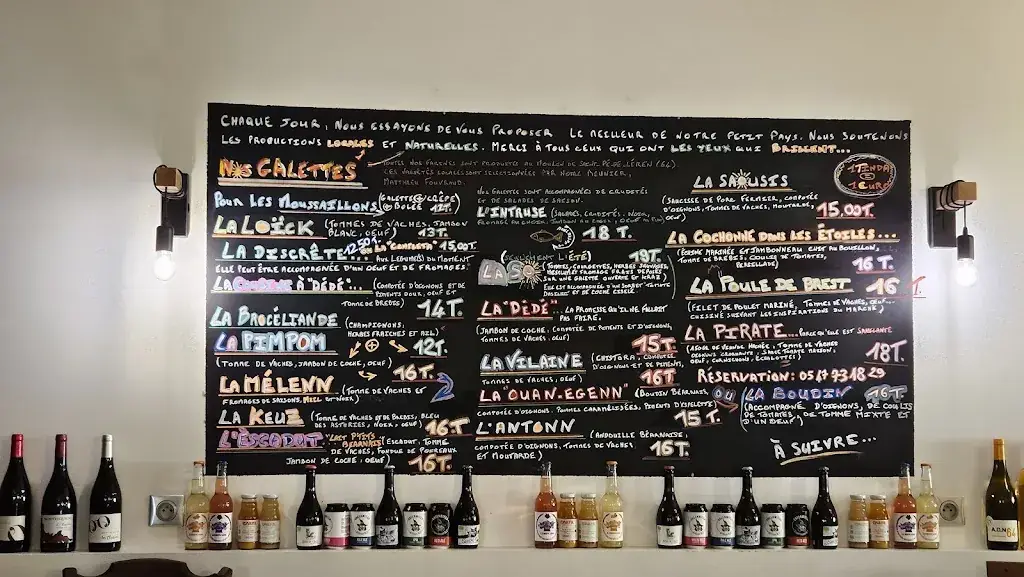 CHAQUE JOUR, NOUS ESSAYONS DE VOUS PROPOSER LE MEILLEUR DE NOTRE PETIT PAYS. NOUS SOUTENONS
LES PRODUCTIONS LOCALES ET NATURELLES. MERCI À TOUS CEUX QUI ONT LES YEUX QUI BRILLENT...
NOS GALETTES
MATTHIEU FOUVEAUD
POUR LES MOUSSAILLONS (GALETTE & CRÊPE
& BOLÉE 12T.
LA LOÏCK (TOMMES DE VACHES, JAMBON
BLANC, OEUF) 13T.
LA DISCRÈTE... 12,50T. OU LA "COMPLETA" 15,00T.
AUX LÉGUMES DU MOMENT
ELLE PEUT ÊTRE ACCOMPAGNÉE D'UN OEUF ET DE FROMAGES.
À DÉDÉ"... (COMPOTÉE D'OIGNONS ET DE
PIMENTS DOUX, OEUF ET
TOMME DE BREBIS) 14T.
LA BROCÉLIANDE (CHAMPIGNONS,
HERBES FRAICHES ET AIL)
LA PIMPOM 12T.
(TOMME DE VACHES, JAMBON DE COCHE, OEUF) 16T.
LA MÉLENN (TOMME DE VACHES ET
FROMAGES DE SAISONS, MIEL ET NOIX)
LA KEUZ (TOMME DE VACHES ET DE BREBIS, BLEU
DES ASTURIES, NOIX, OEUF) 16T.
L'ESCADOT "LAST P'TITS BÉARNAIS" (ESCADOT, TOMME
DE VACHES, FONDUE DE POIREAUX
JAMBON DE COCHE, OEUF) 16T.
NOS GALETTES SONT ACCOMPAGNÉES DE CRUDITÉS
ET DE SALADES DE SAISON.
L'INTRUSE (SALADES, CRUDITÉS, NOIX,
18T.
(SEULEMENT L'ÉTÉ) 19T.
TOMATES, COURGETTES, HERBES SAUVAGES,
SUR UNE GALETTE OUVERTE ET KRAZ
LA "DÉDÉ"... LA PROMESSE QU'IL NE FALLAIT
PAS FAIRE.
(JAMBON DE COCHE, COMPOTÉE DE PIMENTS ET D'OIGNONS,
TOMMES DE VACHES, OEUF) 15T.
LA VILAINE (CHISTORA, COMPOTÉE
D'OIGNONS ET DE PIMENTS,
TOMMES DE VACHES, OEUF) 16T.
LA "OUAN-EGENN" (BOUDIN BÉARNAIS,
COMPOTÉE D'OIGNONS, POMMES CARAMÉLISÉES, PIMENTS D'ESPELETTE)
15T.
L'ANTONN (ANDOUILLE BÉARNAISE,
COMPOTÉE D'OIGNONS, TOMMES DE VACHES
ET MOUTARDE) 16T.
1 TINDA
@
1 EURO
LA SAOUSIS
(SAUCISSE DE PORC FERMIER, COMPOTÉE
D'OIGNONS, TOMMES DE VACHES, MOUTARDE,
OEUF) 15.00T.
LA COCHONNE DANS LES ÉTOILES...
(ÉCHINE MARINÉE ET JAMBONNEAU CUIT AU BOUILLON,
TOMME DE BREBIS, COULIS DE TOMATES,
PERSILLADE) 16T.
LA POULE DE BREST 16T.
(FILET DE POULET MARINÉ, TOMMES DE VACHES, OEUF...
CUISINÉ SUIVANT LES INSPIRATIONS DU MARCHÉ)
LA PIRATE... PARCE QU'ELLE EST SANGLANTE
(STEAK DE VIANDE HACHÉE, TOMME DE VACHES
OIGNONS CROQUANTS, SAUCE TOMATE MAISON,
OEUF, CORNICHONS, ÉCHALOTES) 18T.
RÉSERVATION: 05 47 73 18 29
OU LA BOUDIN 16T.
(ACCOMPAGNÉ D'OIGNONS, DE COULIS
DE TOMATES, DE TOMME MIXTE ET
D'UN OEUF)
À SUIVRE...